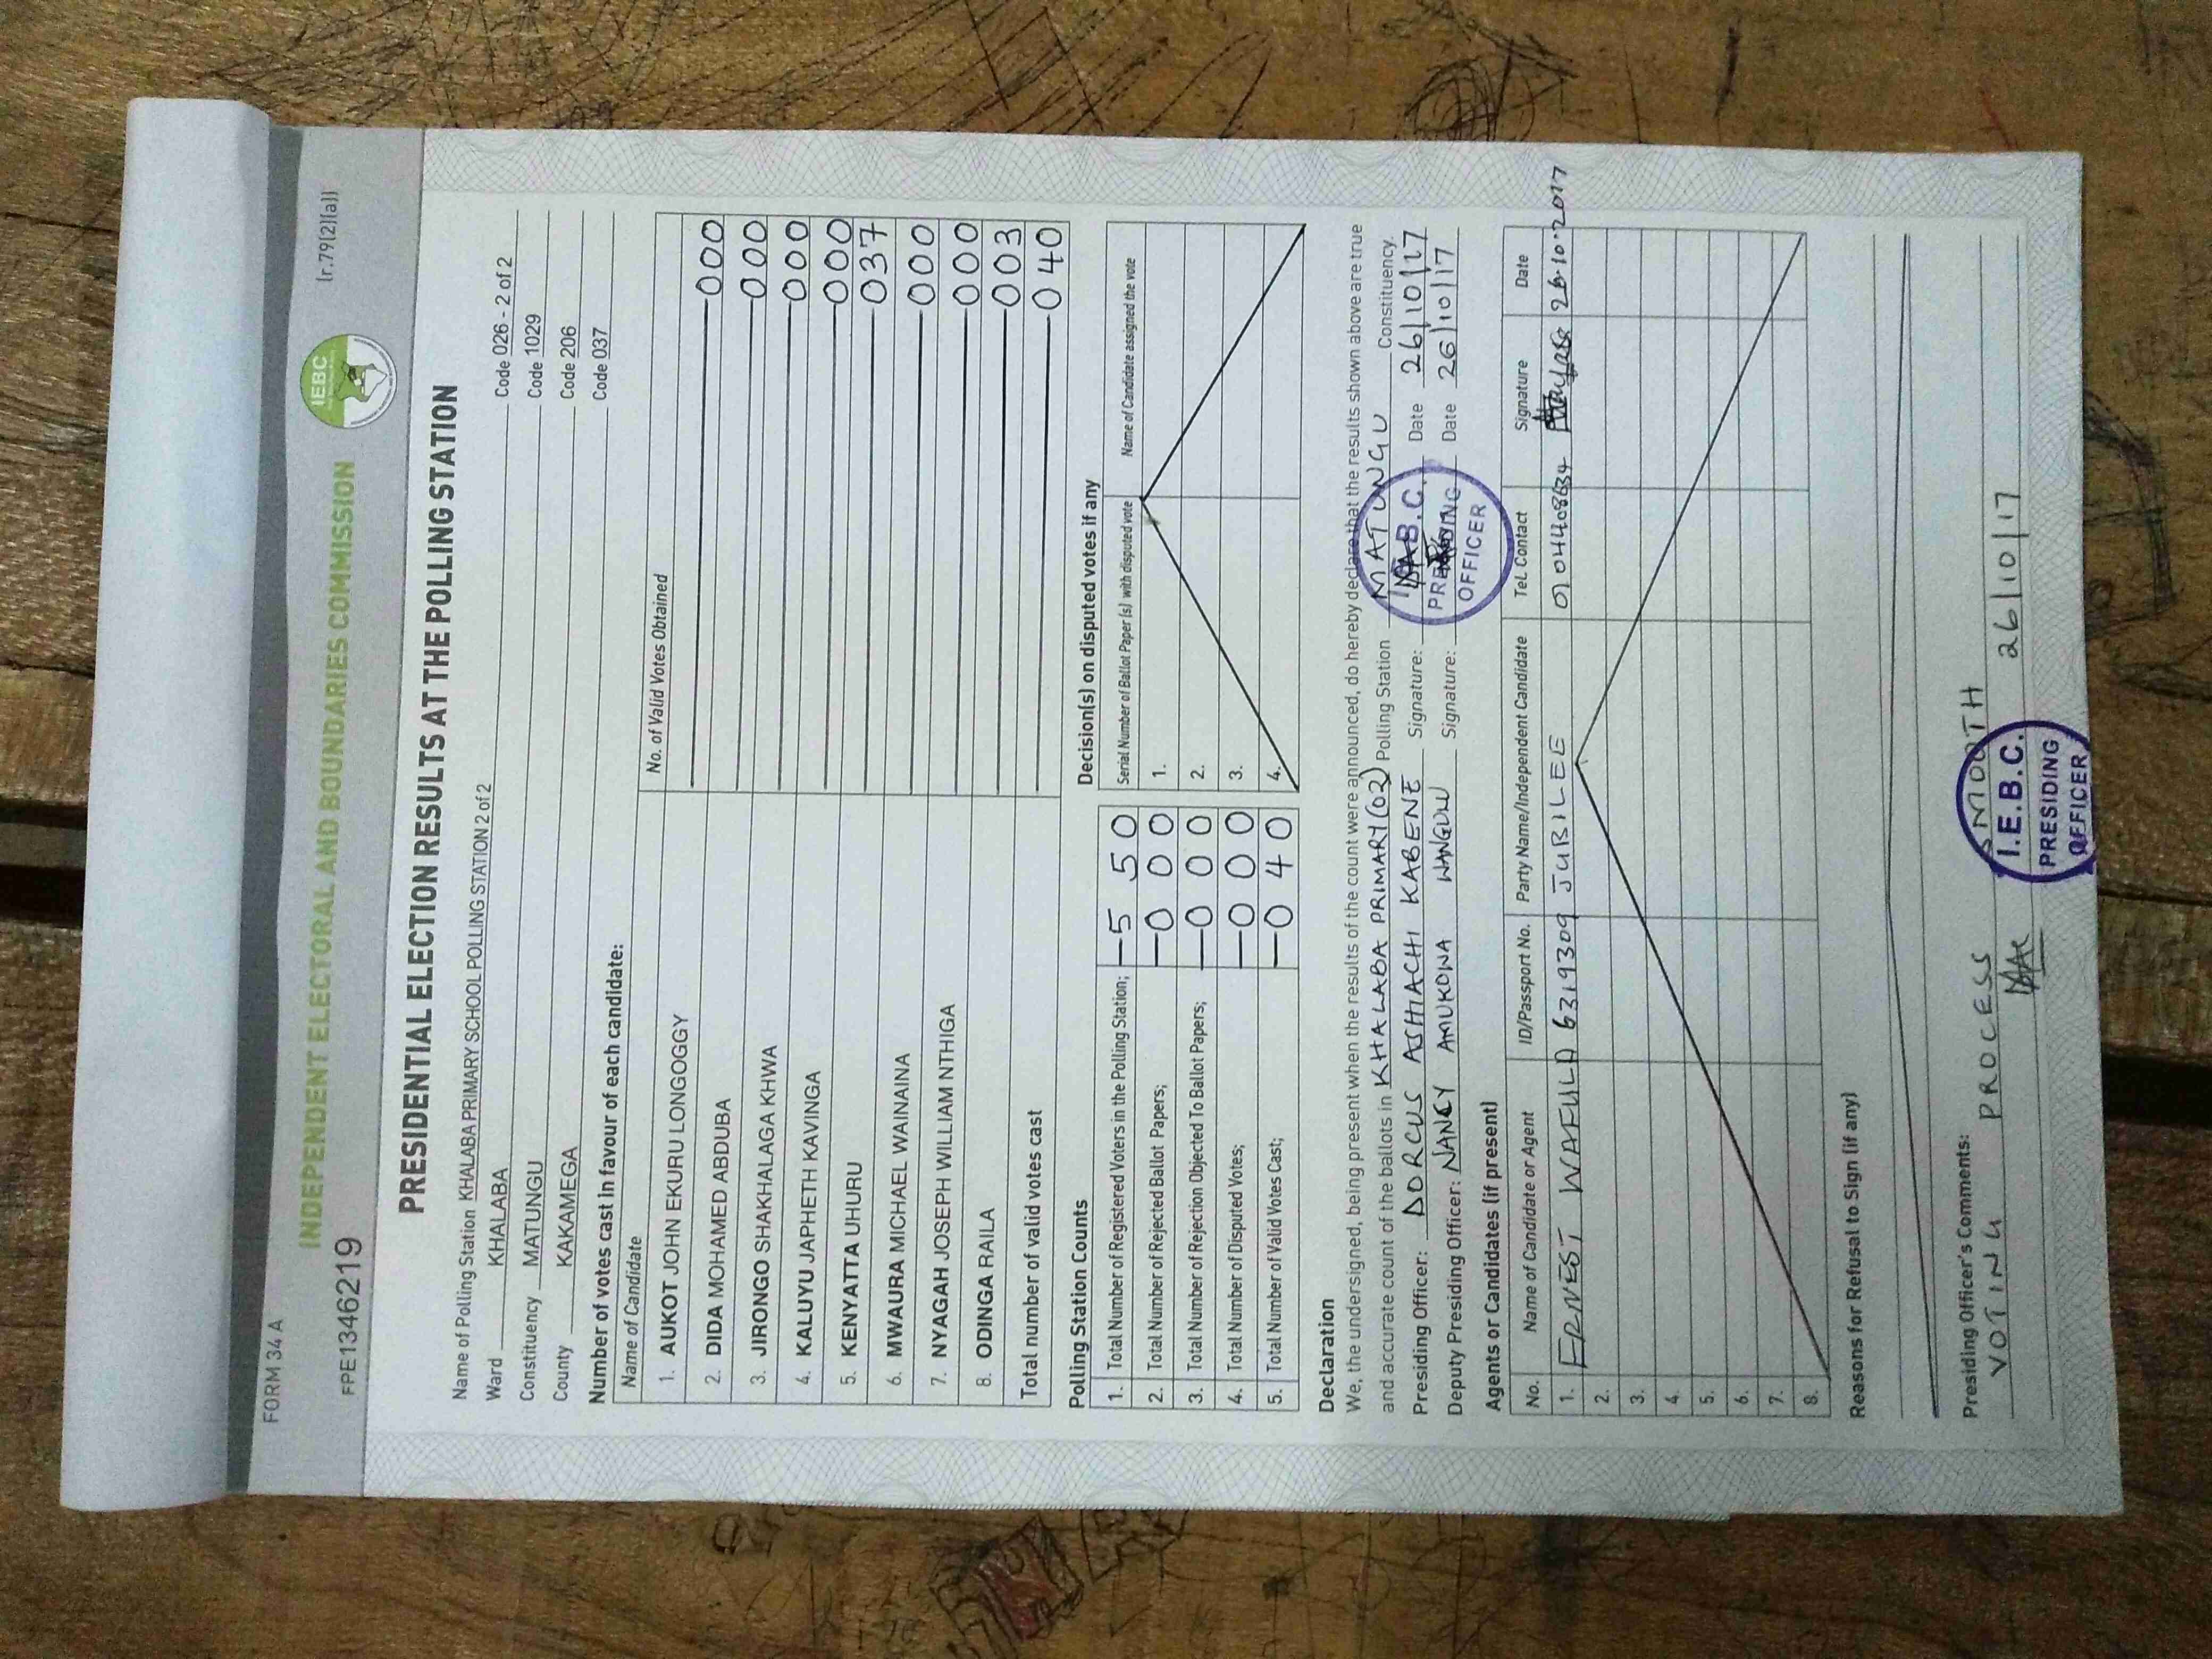 FORM 34 A
INDEPENDENT ELECTORAL AND BOUNDARIES COMMISSION
IEBC
(r.79(2)(a))
FPE1346219
PRESIDENTIAL ELECTION RESULTS AT THE POLLING STATION
Name of Polling Station KHALABA PRIMARY SCHOOL POLLING STATION 2 of 2 Code 026 - 2 of 2
Ward KHALABA Code 1029
Constituency MATUNGU Code 206
County KAKAMEGA Code 037
Number of votes cast in favour of each candidate:
Name of Candidate No. of Valid Votes Obtained
1. AUKOT JOHN EKURU LONGOGGY 000
2. DIDA MOHAMED ABDUBA 000
3. JIRONGO SHAKHALAGA KHWA 000
4. KALUYU JAPHETH KAVINGA 000
5. KENYATTA UHURU 037
6. MWAURA MICHAEL WAINAINA 000
7. NYAGAH JOSEPH WILLIAM NTHIGA 000
8. ODINGA RAILA 003
Total number of valid votes cast 040
Polling Station Counts
1. Total Number of Registered Voters in the Polling Station; 550
2. Total Number of Rejected Ballot Papers; 000
3. Total Number of Rejection Objected To Ballot Papers; 000
4. Total Number of Disputed Votes; 000
5. Total Number of Valid Votes Cast; 040
Decision(s) on disputed votes if any
Serial Number of Ballot Paper (s) with disputed vote Name of Candidate assigned the vote
1.
2.
3.
4.
Declaration
We, the undersigned, being present when the results of the count were announced, do hereby declare that the results shown above are true
and accurate count of the ballots in KHALABA PRIMARY (02) Polling Station MATUNGU Constituency.
Presiding Officer: DORCUS ASHIACHI KABENE Signature: Date 26/10/17
Deputy Presiding Officer: NANCY AMUKOWA WANGUU Signature: Date 26/10/17
I.E.B.C.
PRESIDING
OFFICER
Agents or Candidates (if present)
No. Name of Candidate or Agent ID/Passport No. Party Name/Independent Candidate Tel. Contact Signature Date
1. ERNEST WAFULA 6319309 JUBILEE 26.10.2017
2.
3.
4.
5.
6.
7.
8.
Reasons for Refusal to Sign (if any)
Presiding Officer's Comments:
VOTING PROCESS SMOOTH 26/10/17
I.E.B.C.
PRESIDING
OFFICER